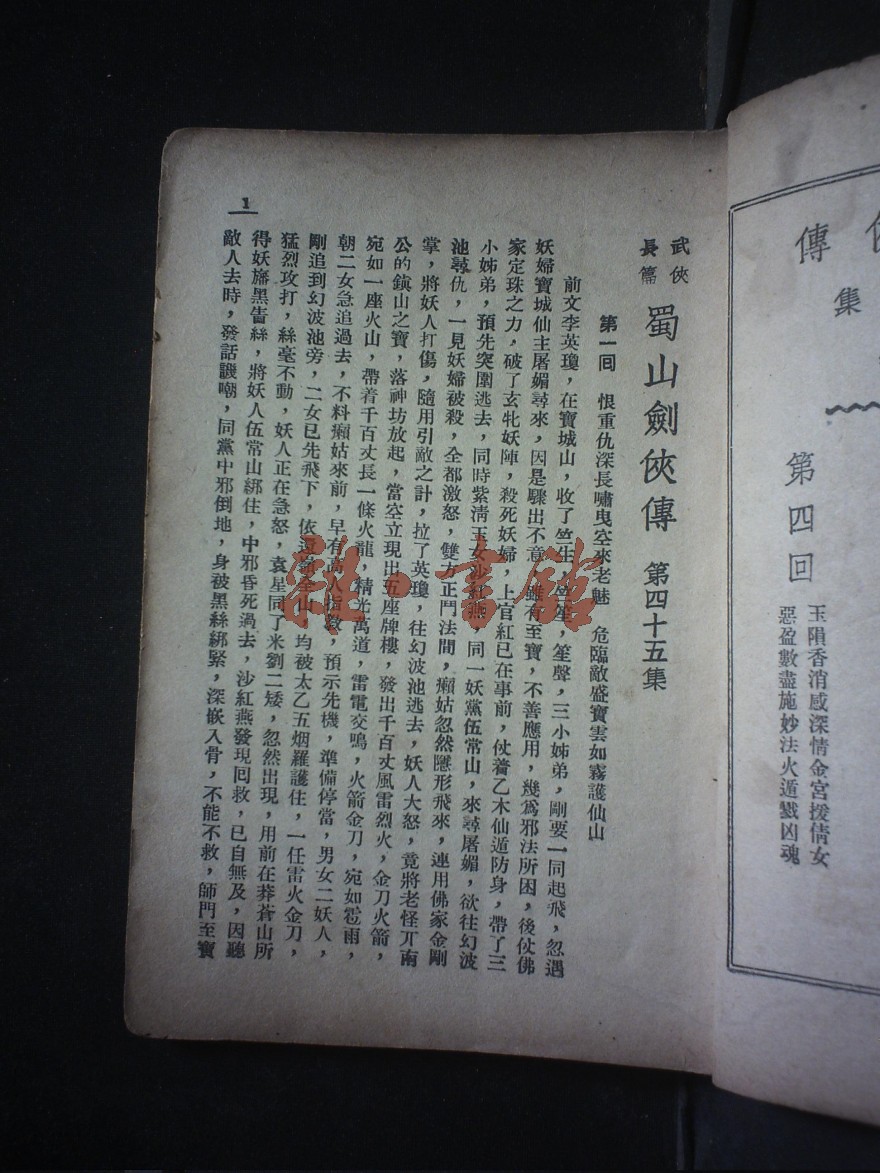 傳
集
第四回
玉隕香消感深情金宮援倩女
惡盈數盡施妙法火遁戮凶魂
武俠長篇
蜀山劍俠傳 第四十五集
第一囘 恨重仇深長嘯曳空來老魅 危臨敵盛寶雲如霧護仙山
前文李英瓊,在寶城山,收了竺生,竺笙,笙聲,三小姊弟,剛要一同起飛,忽遇
妖婦寶城仙主屠媚尋來,因是驟出不意,雖有至寶,不善應用,幾為邪法所困,後仗佛
家定珠之力,破了玄牝妖陣,殺死妖婦,上官紅已在事前,仗着乙木仙遁防身,帶了三
小姊弟,預先突圍逃去,同時紫清玉女沙紅燕,同一妖黨伍常山,來尋屠媚,欲往幻波
池尋仇,一見妖婦被殺,全都激怒,雙方正鬥法間,癩姑忽然隱形飛來,連用佛家金剛
掌,將妖人打傷,隨用引敵之計,拉了英瓊,往幻波池逃去,妖人大怒,竟將老怪丌南
公的鎮山之寶,落神坊放起,當空立現出五座牌樓,發出千百丈風雷烈火,金刀火箭,
宛如一座火山,帶着千百丈長一條火龍,精光萬道,雷電交鳴,火箭金刀,宛如雹雨,
朝二女急追過去,不料癩姑來前,早有高人指教,預示先機,準備停當,男女二妖人,
剛追到幻波池旁,二女已先飛下,依還嶺全山,均被太乙五烟羅護住,一任雷火金刀,
猛烈攻打,絲毫不動,妖人正在急怒,袁星同了米劉二矮,忽然出現,用前在莽蒼山所
得妖旛黑眚絲,將妖人伍常山綁住,中邪昏死過去,沙紅燕發現囘救,已自無及,因聽
敵人去時,發話譏嘲,同黨中邪倒地,身被黑絲綁緊,深嵌入骨,不能不救,師門至寶
1
雜·書館